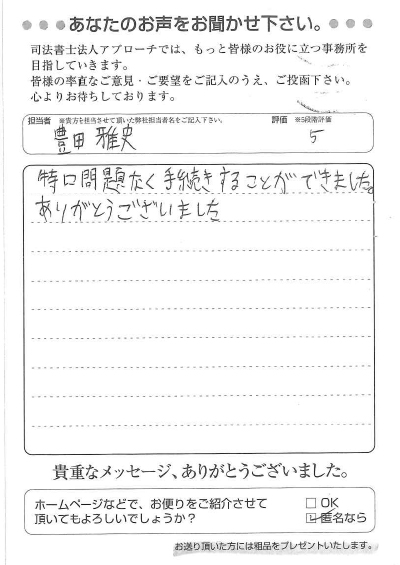 あなたのお声をお聞かせ下さい。
司法書士法人アプローチでは、もっと皆様のお役に立つ事務所を
目指していきます。
皆様の率直なご意見・ご要望をご記入のうえ、ご投函下さい。
心よりお待ちしております。
担当者 ※貴方を担当させて頂いた弊社担当者名をご記入下さい。 評価 ※5段階評価
豊田 雅史 5
特に問題なく手続きすることができました。
ありがとうございました
貴重なメッセージ、ありがとうございました。
ホームページなどで、お便りをご紹介させて □ OK
頂いてもよろしいでしょうか? ☑ 匿名なら
お送り頂いた方には粗品をプレゼントいたします。